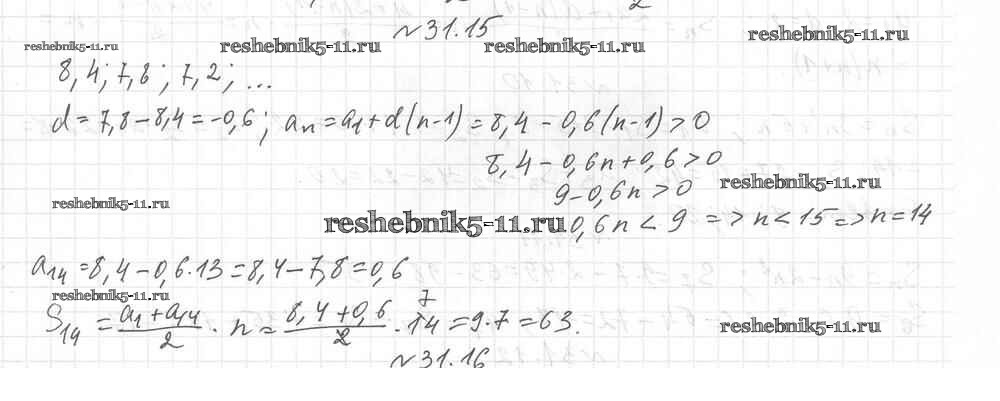 №31.15
reshebnik5-11.ru reshebnik5-11.ru reshebnik5-11.ru reshebnik5-11.ru
8,4; 7,8; 7,2; ...
d = 7,8 - 8,4 = -0,6; aₙ = a₁ + d(n-1) = 8,4 - 0,6(n-1) > 0
8,4 - 0,6n + 0,6 > 0
reshebnik5-11.ru
9 - 0,6n > 0
reshebnik5-11.ru
reshebnik5-11.ru 0,6n < 9 => n < 15 => n = 14
a₁₄ = 8,4 - 0,6·13 = 8,4 - 7,8 = 0,6
reshebnik5-11.ru
S₁₄ = (a₁ + a₁₄)/2 · n = (8,4 + 0,6)/2 · 14 7 = 9·7 = 63.
reshebnik5-11.ru
№31.16